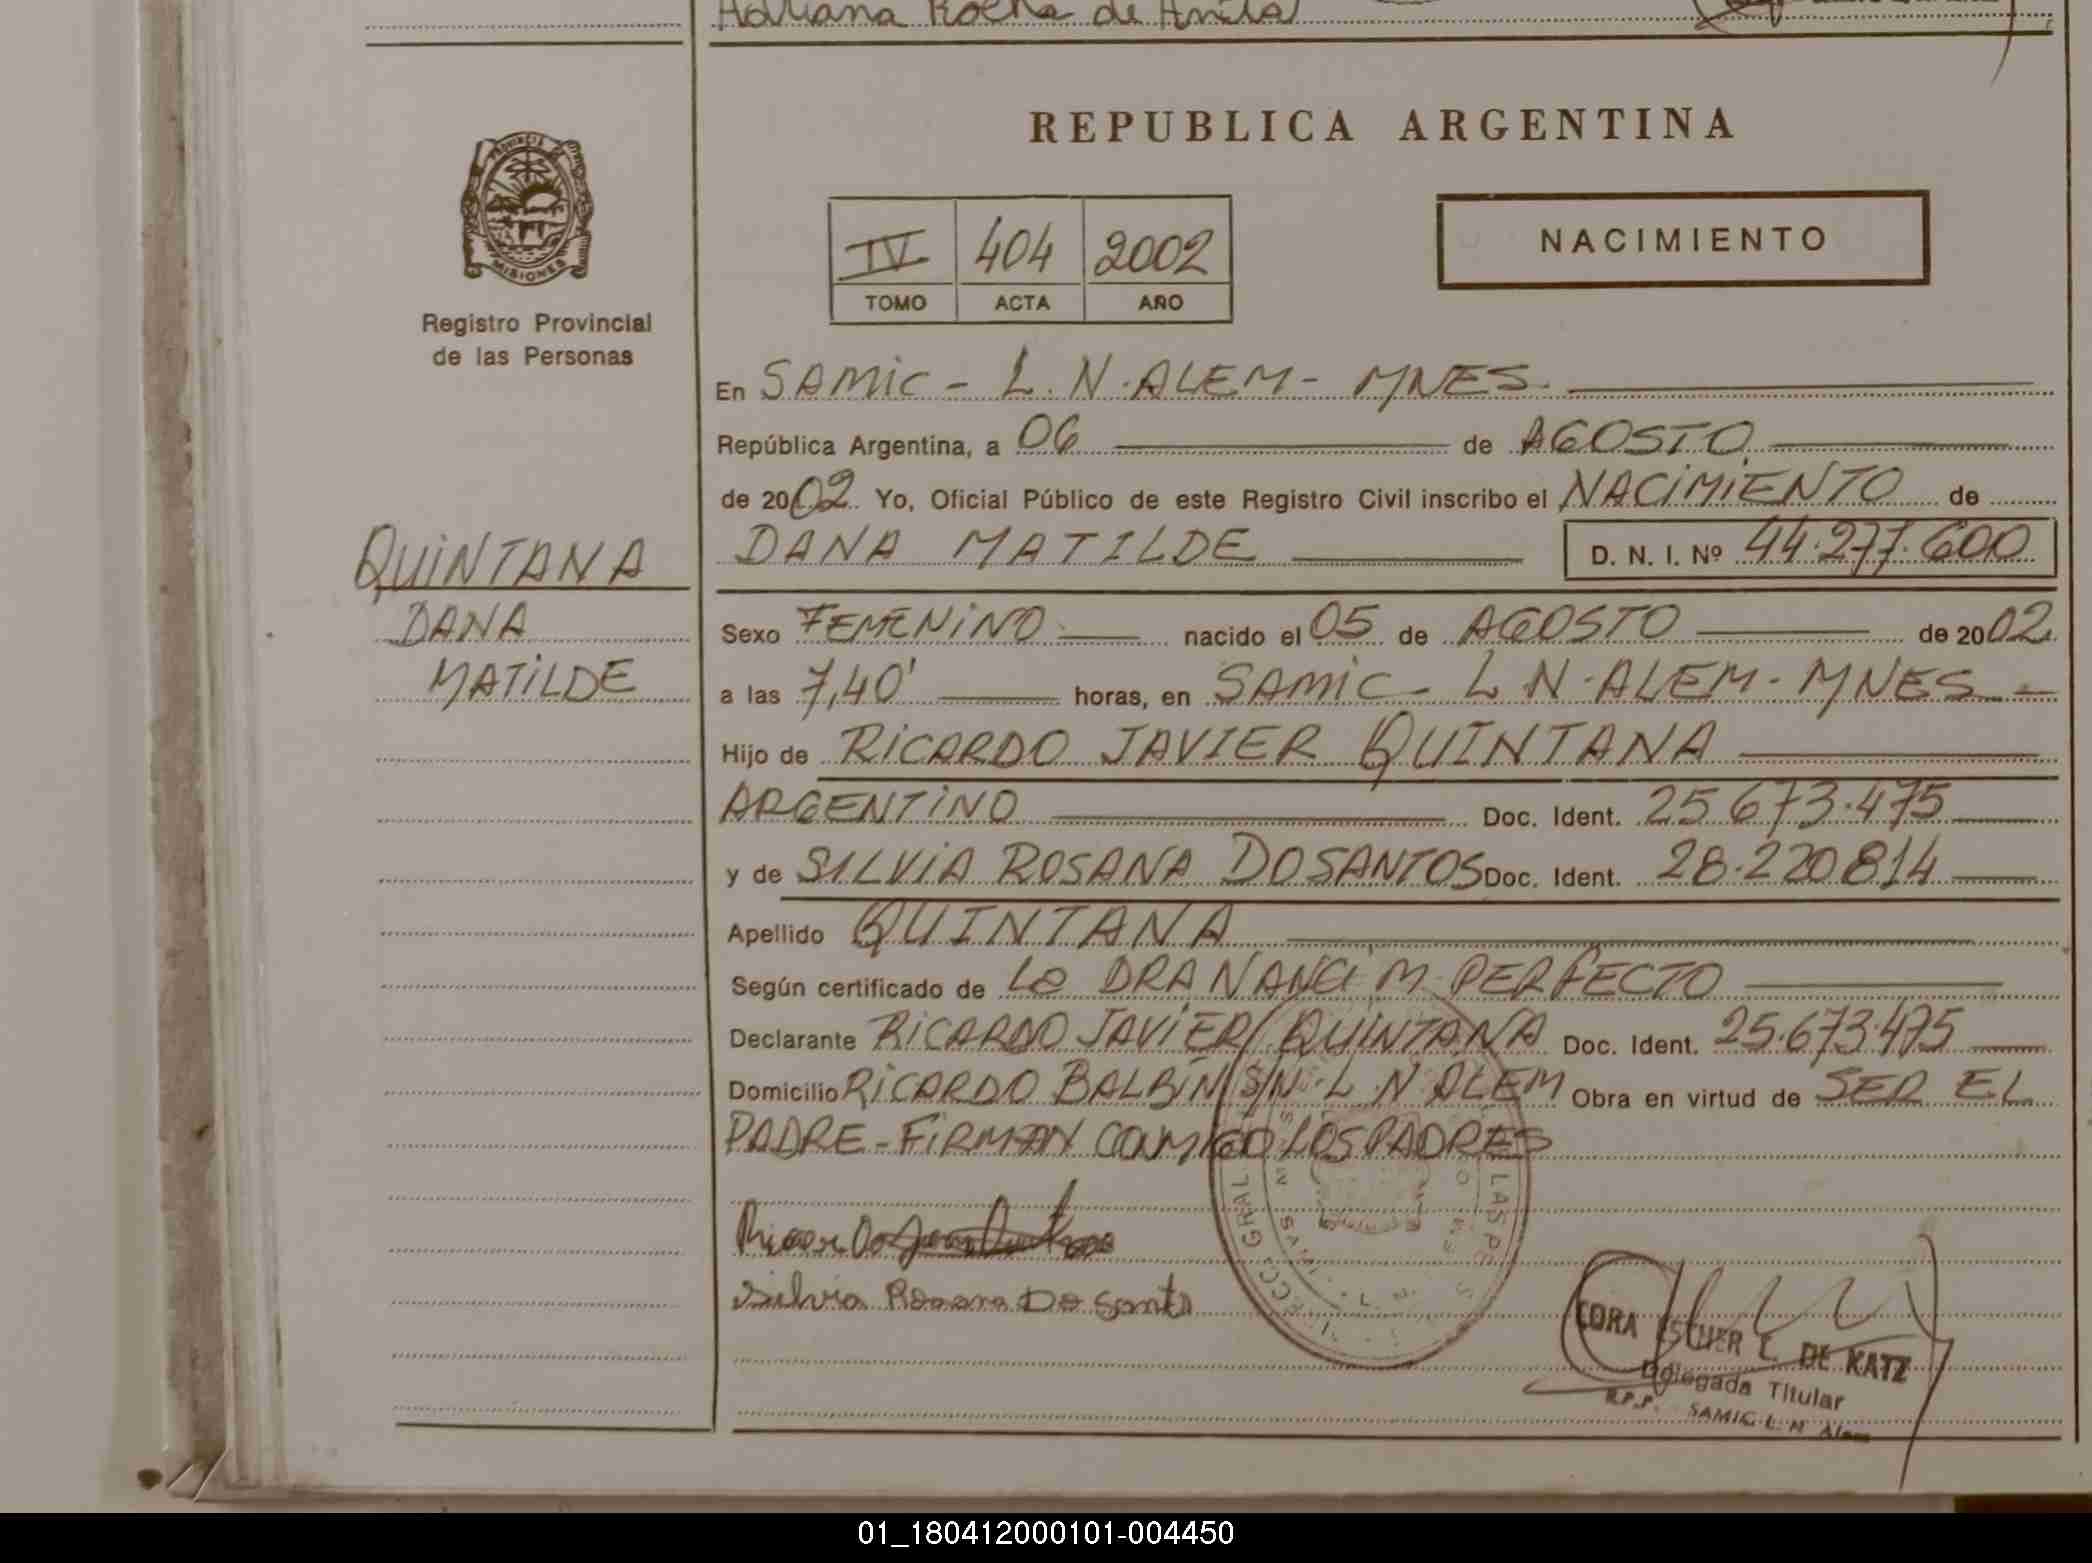 Adriana Rocha de
REPUBLICA ARGENTINA
PROVINCIA DE
MISIONES
Registro Provincial
de las Personas
IV 404 2002
TOMO ACTA AÑO
NACIMIENTO
En SAMIC - L.N. ALEM - MNES.
República Argentina, a 06 de AGOSTO
de 2002. Yo, Oficial Público de este Registro Civil inscribo el NACIMIENTO de
QUINTANA
DANA
MATILDE
DANA MATILDE D. N. I. Nº 44.277.600
Sexo FEMENINO nacido el 05 de AGOSTO de 2002
a las 7,40' horas, en SAMIC - L N. ALEM - MNES -
Hijo de RICARDO JAVIER QUINTANA
ARGENTINO Doc. Ident. 25.673.475
y de SILVIA ROSANA DOSANTOS Doc. Ident. 28.220814
Apellido QUINTANA
Según certificado de La DRA NANCI M. PERFECTO
Declarante RICARDO JAVIER QUINTANA Doc. Ident. 25.673.475
Domicilio RICARDO BALBIN S/N. L N ALEM Obra en virtud de SER EL
PADRE - FIRMAN CONMIGO LOS PADRES
Silvia Rosana Do Santo
CORA ESTHER L. DE KATZ
Delegada Titular
R.P.P. SAMIC L. N. Alem
01_180412000101-004450